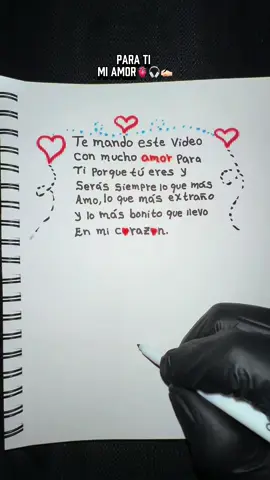 PARA TI
MI AMOR🫀🎧✍🏻
Te mando este Video
con mucho amor Para
Ti Porque tú eres y
Serás siempre lo que más
Amo, lo que más extraño
y lo más bonito que llevo
En mi corazon.